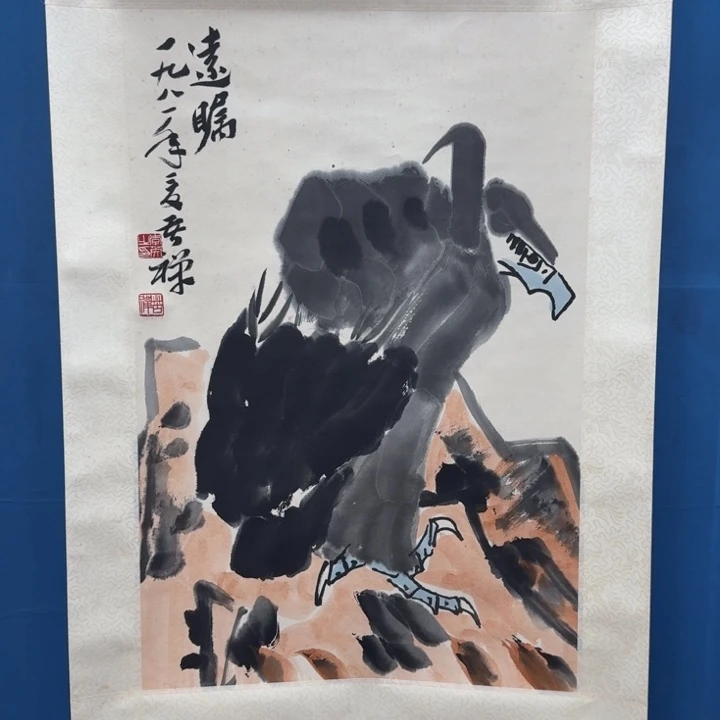 遠瞩
一九八一年夏苦禪